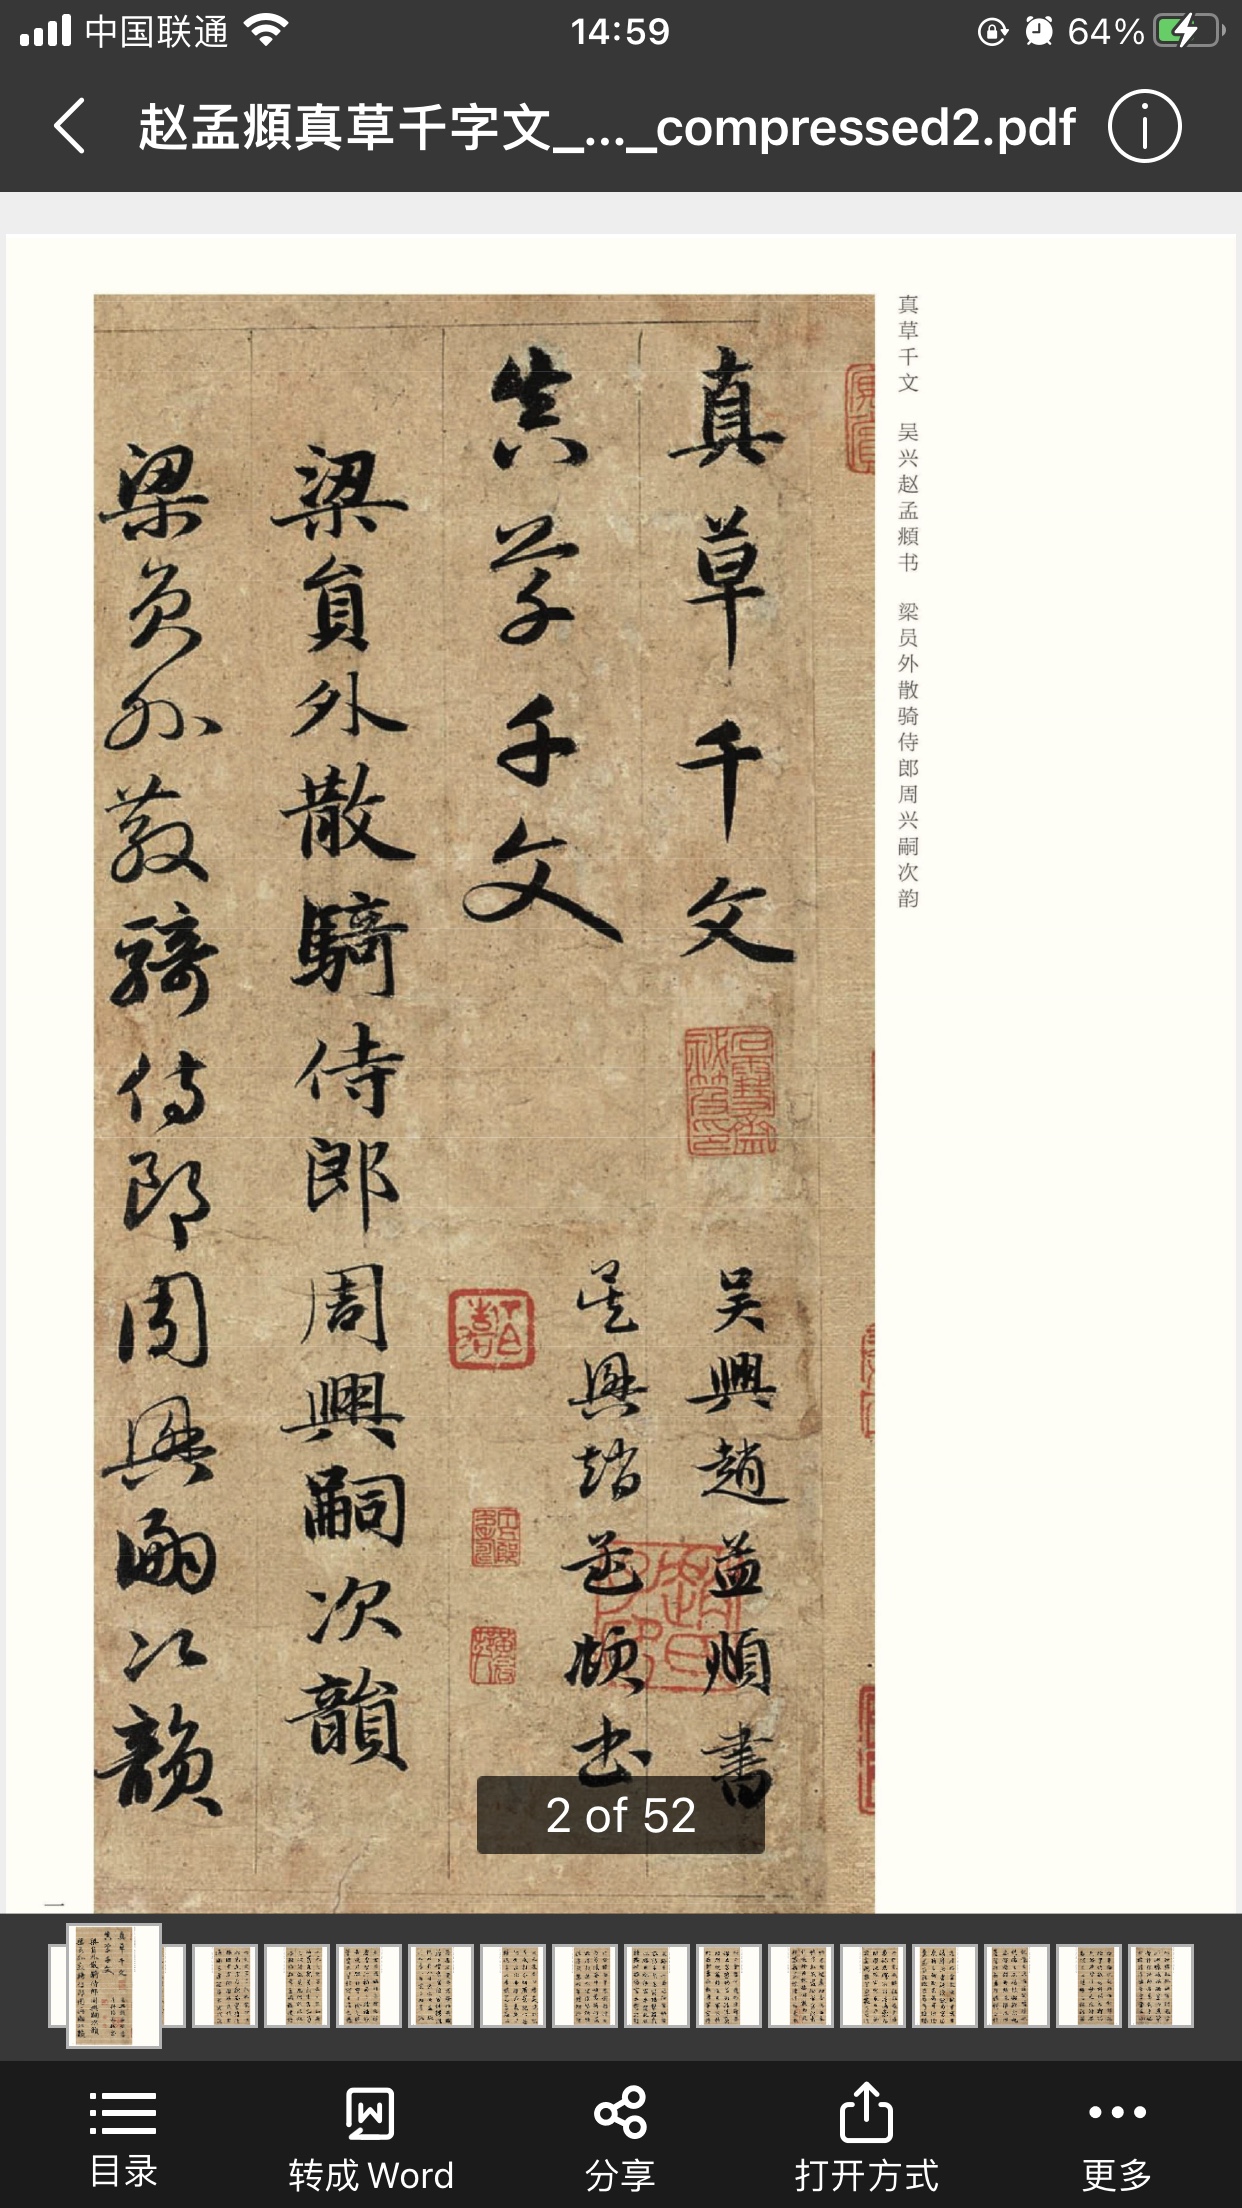 中国联通
14:59
64%
赵孟頫真草千字文_..._compressed2.pdf
真草千文 吴兴赵孟頫书 梁员外散骑侍郎周兴嗣次韵
真草千文
吴興趙孟頫書
真草千文
吴興趙孟頫书
梁員外散騎侍郎周興嗣次韻
梁員外散騎侍郎周興嗣次韻
一
2 of 52
目录
转成Word
分享
打开方式
更多